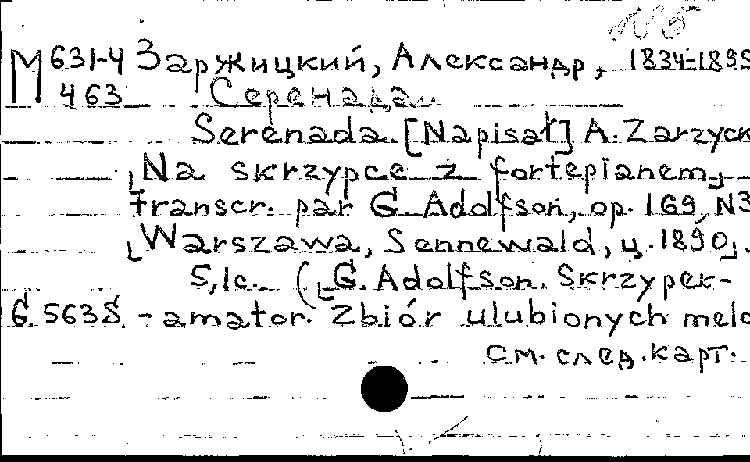 №5
М 631-4 Заржицкий, Александр, 1834-1895
463 Серенада.
Serenada. [Napisał] A. Zarzyck
Na skrzypce z fortepianem,
transcr. par G. Adolfson, op. 169, N3
Warszawa, Sennewald, ц. 1890.
5, 1c. (G. Adolfson. Skrzypek-
G. 5635 -amator. Zbiór ulubionych melo
см. след. карт.